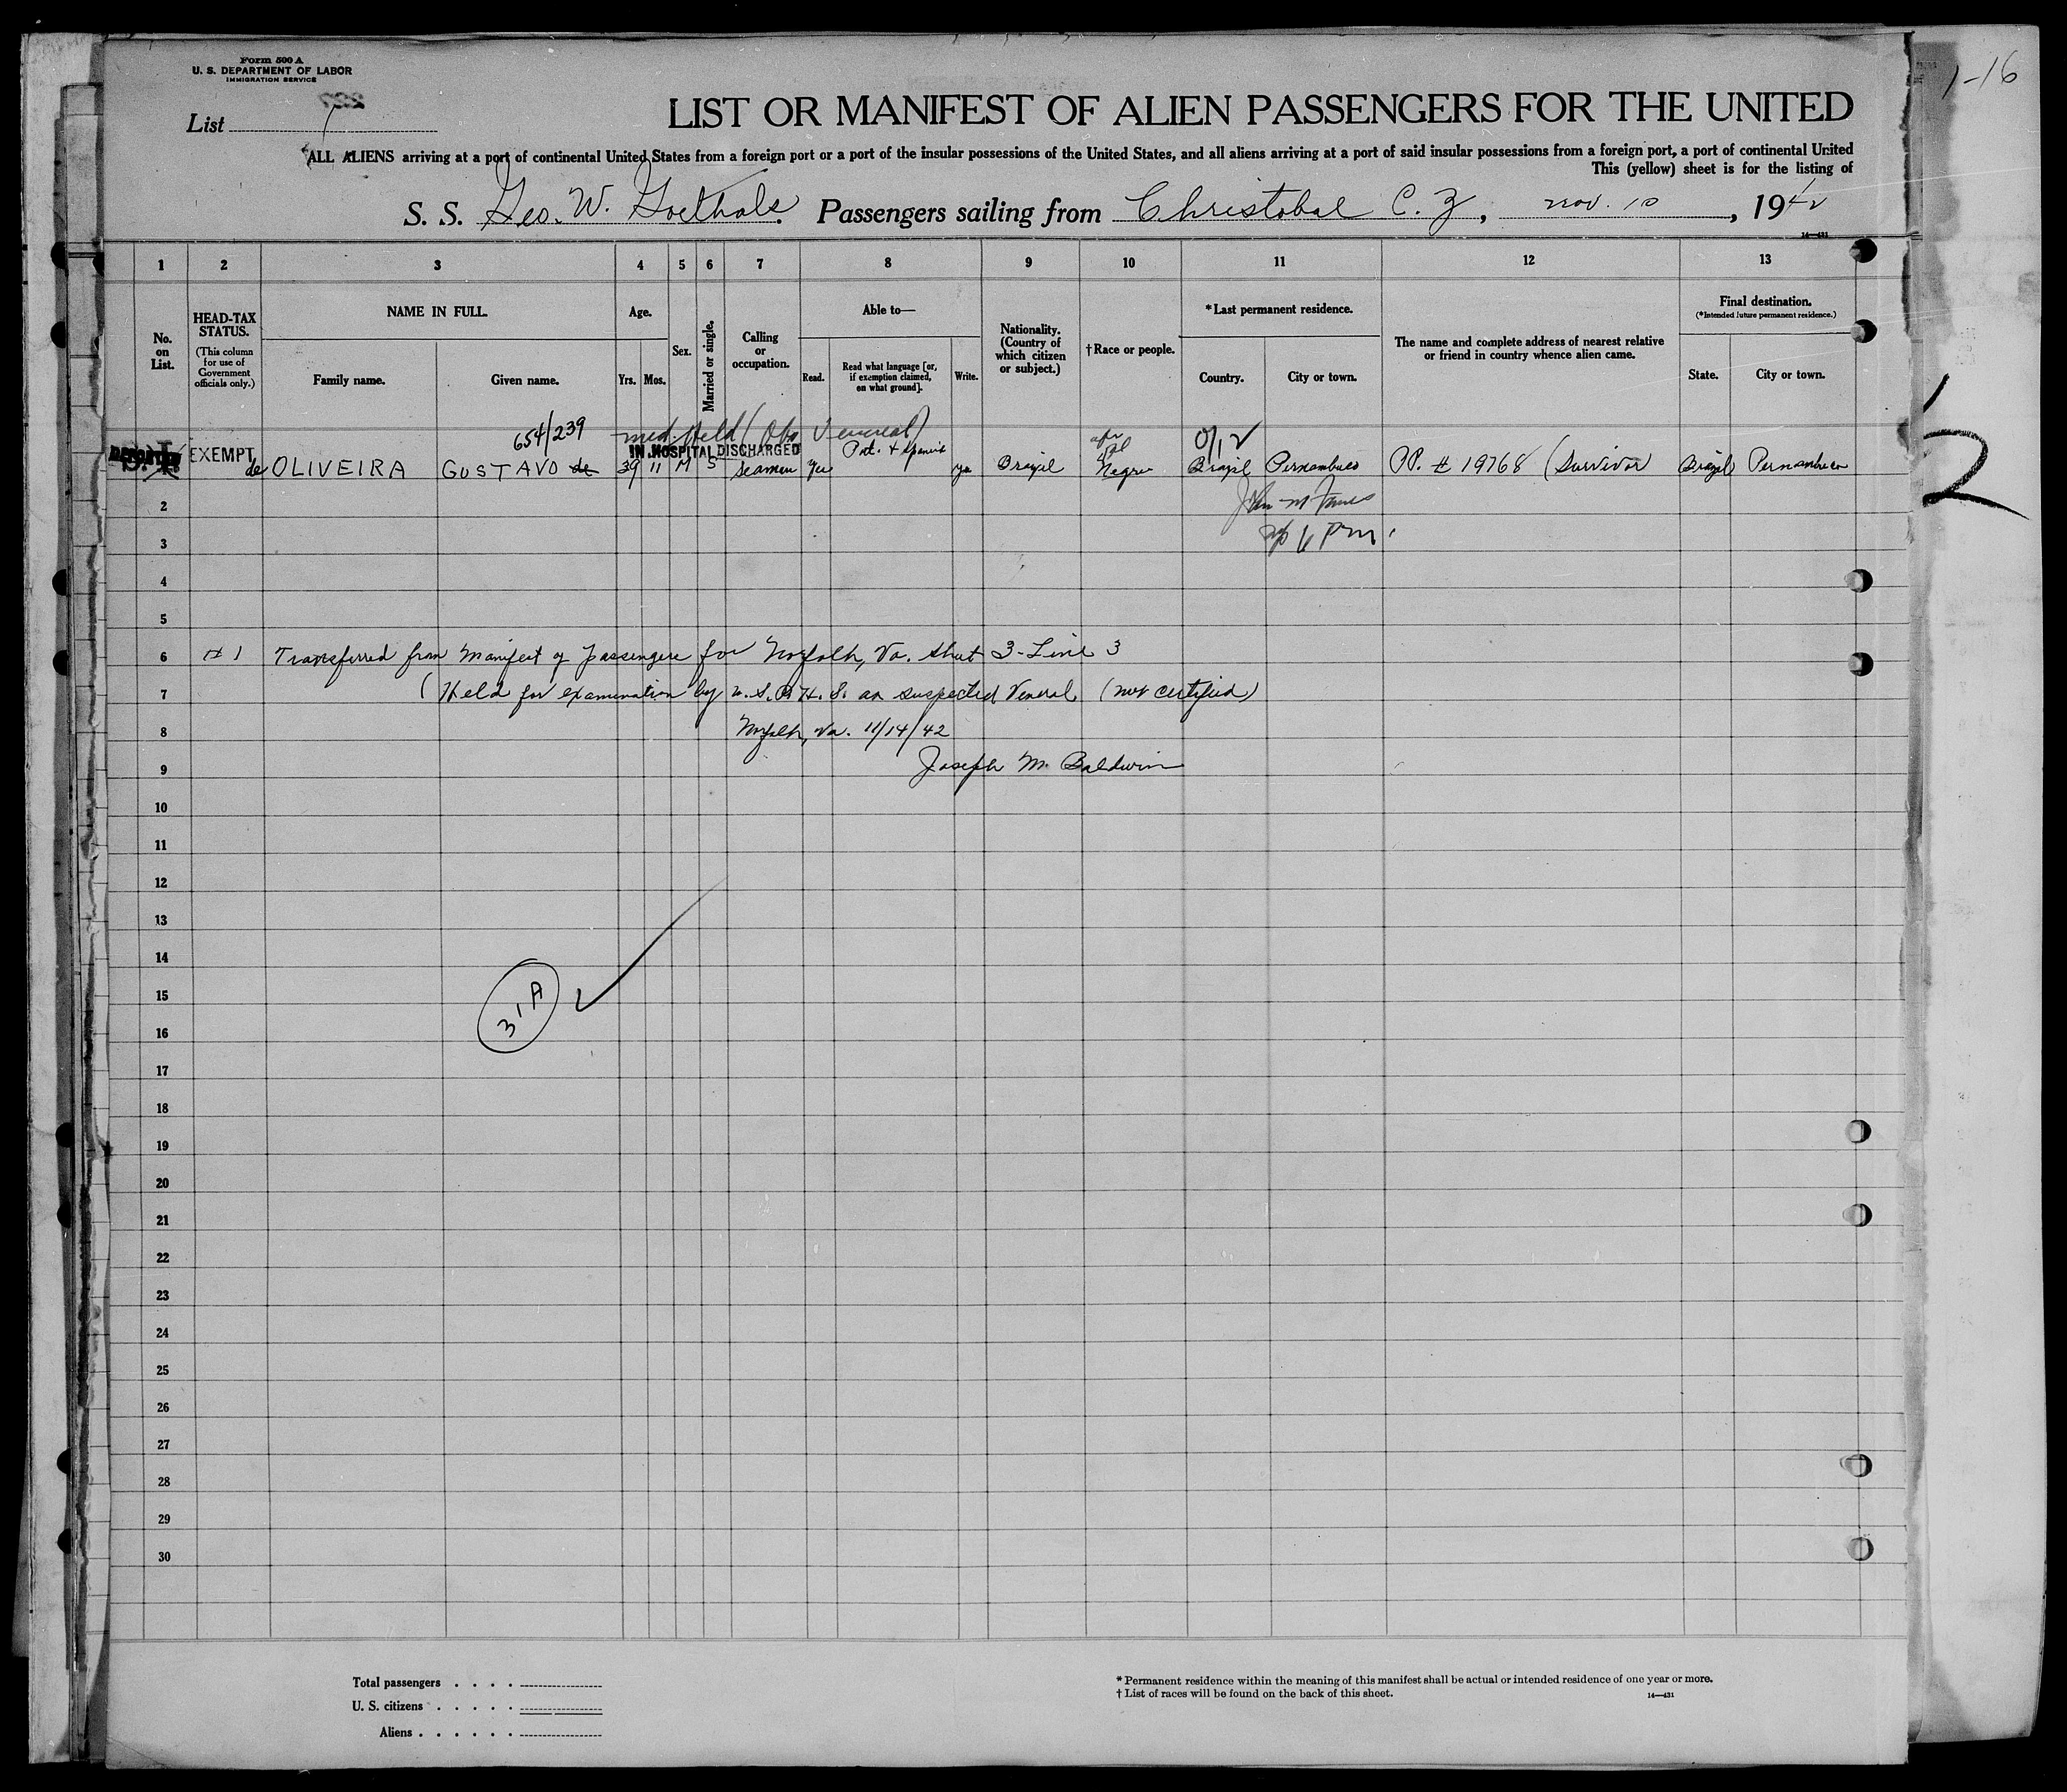 Form 500 A
U. S. DEPARTMENT OF LABOR
IMMIGRATION SERVICE
1-16
List 1
LIST OR MANIFEST OF ALIEN PASSENGERS FOR THE UNITED
ALL ALIENS arriving at a port of continental United States from a foreign port or a port of the insular possessions of the United States, and all aliens arriving at a port of said insular possessions from a foreign port, a port of continental United
This (yellow) sheet is for the listing of
S. S. Geo. W. Goethals Passengers sailing from Christobal C. Z, Nov. 10, 1942
14—431
1 2 3 4 5 6 7 8 9 10 11 12 13
No. on List.
HEAD-TAX STATUS.
(This column for use of Government officials only.)
NAME IN FULL.
Family name. Given name.
Age.
Yrs. Mos.
Sex.
Married or single.
Calling or occupation.
Able to—
Read. Read what language [or, if exemption claimed, on what ground]. Write.
Nationality. (Country of which citizen or subject.)
†Race or people.
*Last permanent residence.
Country. City or town.
The name and complete address of nearest relative or friend in country whence alien came.
Final destination.
(*Intended future permanent residence.)
State. City or town.
654/239 med. Held (Obs Venereal)
IN HOSPITAL DISCHARGED
EXEMPT de OLIVEIRA GUSTAVO de 39 11 M S Seaman Yes Port. + Spanish yes Brazil Negro Brazil Pernambuco PP. # 19768 (Survivor Brazil Pernambuco
2
2
3
4
5
6 # 1 Transferred from Manifest of passengers for Norfolk, Va. sheet 3-Line 3
7 (Held for examination by U.S.P.H.S. as suspected Veneral (not certified)
8 Norfolk, Va. 11/14/42
9 Joseph M. Baldwin
10
11
12
13
14
15
31A
16
17
18
19
20
21
22
23
24
25
26
27
28
29
30
Total passengers . . . .
U. S. citizens . . . . .
Aliens . . . . . .
* Permanent residence within the meaning of this manifest shall be actual or intended residence of one year or more.
† List of races will be found on the back of this sheet.
14—431